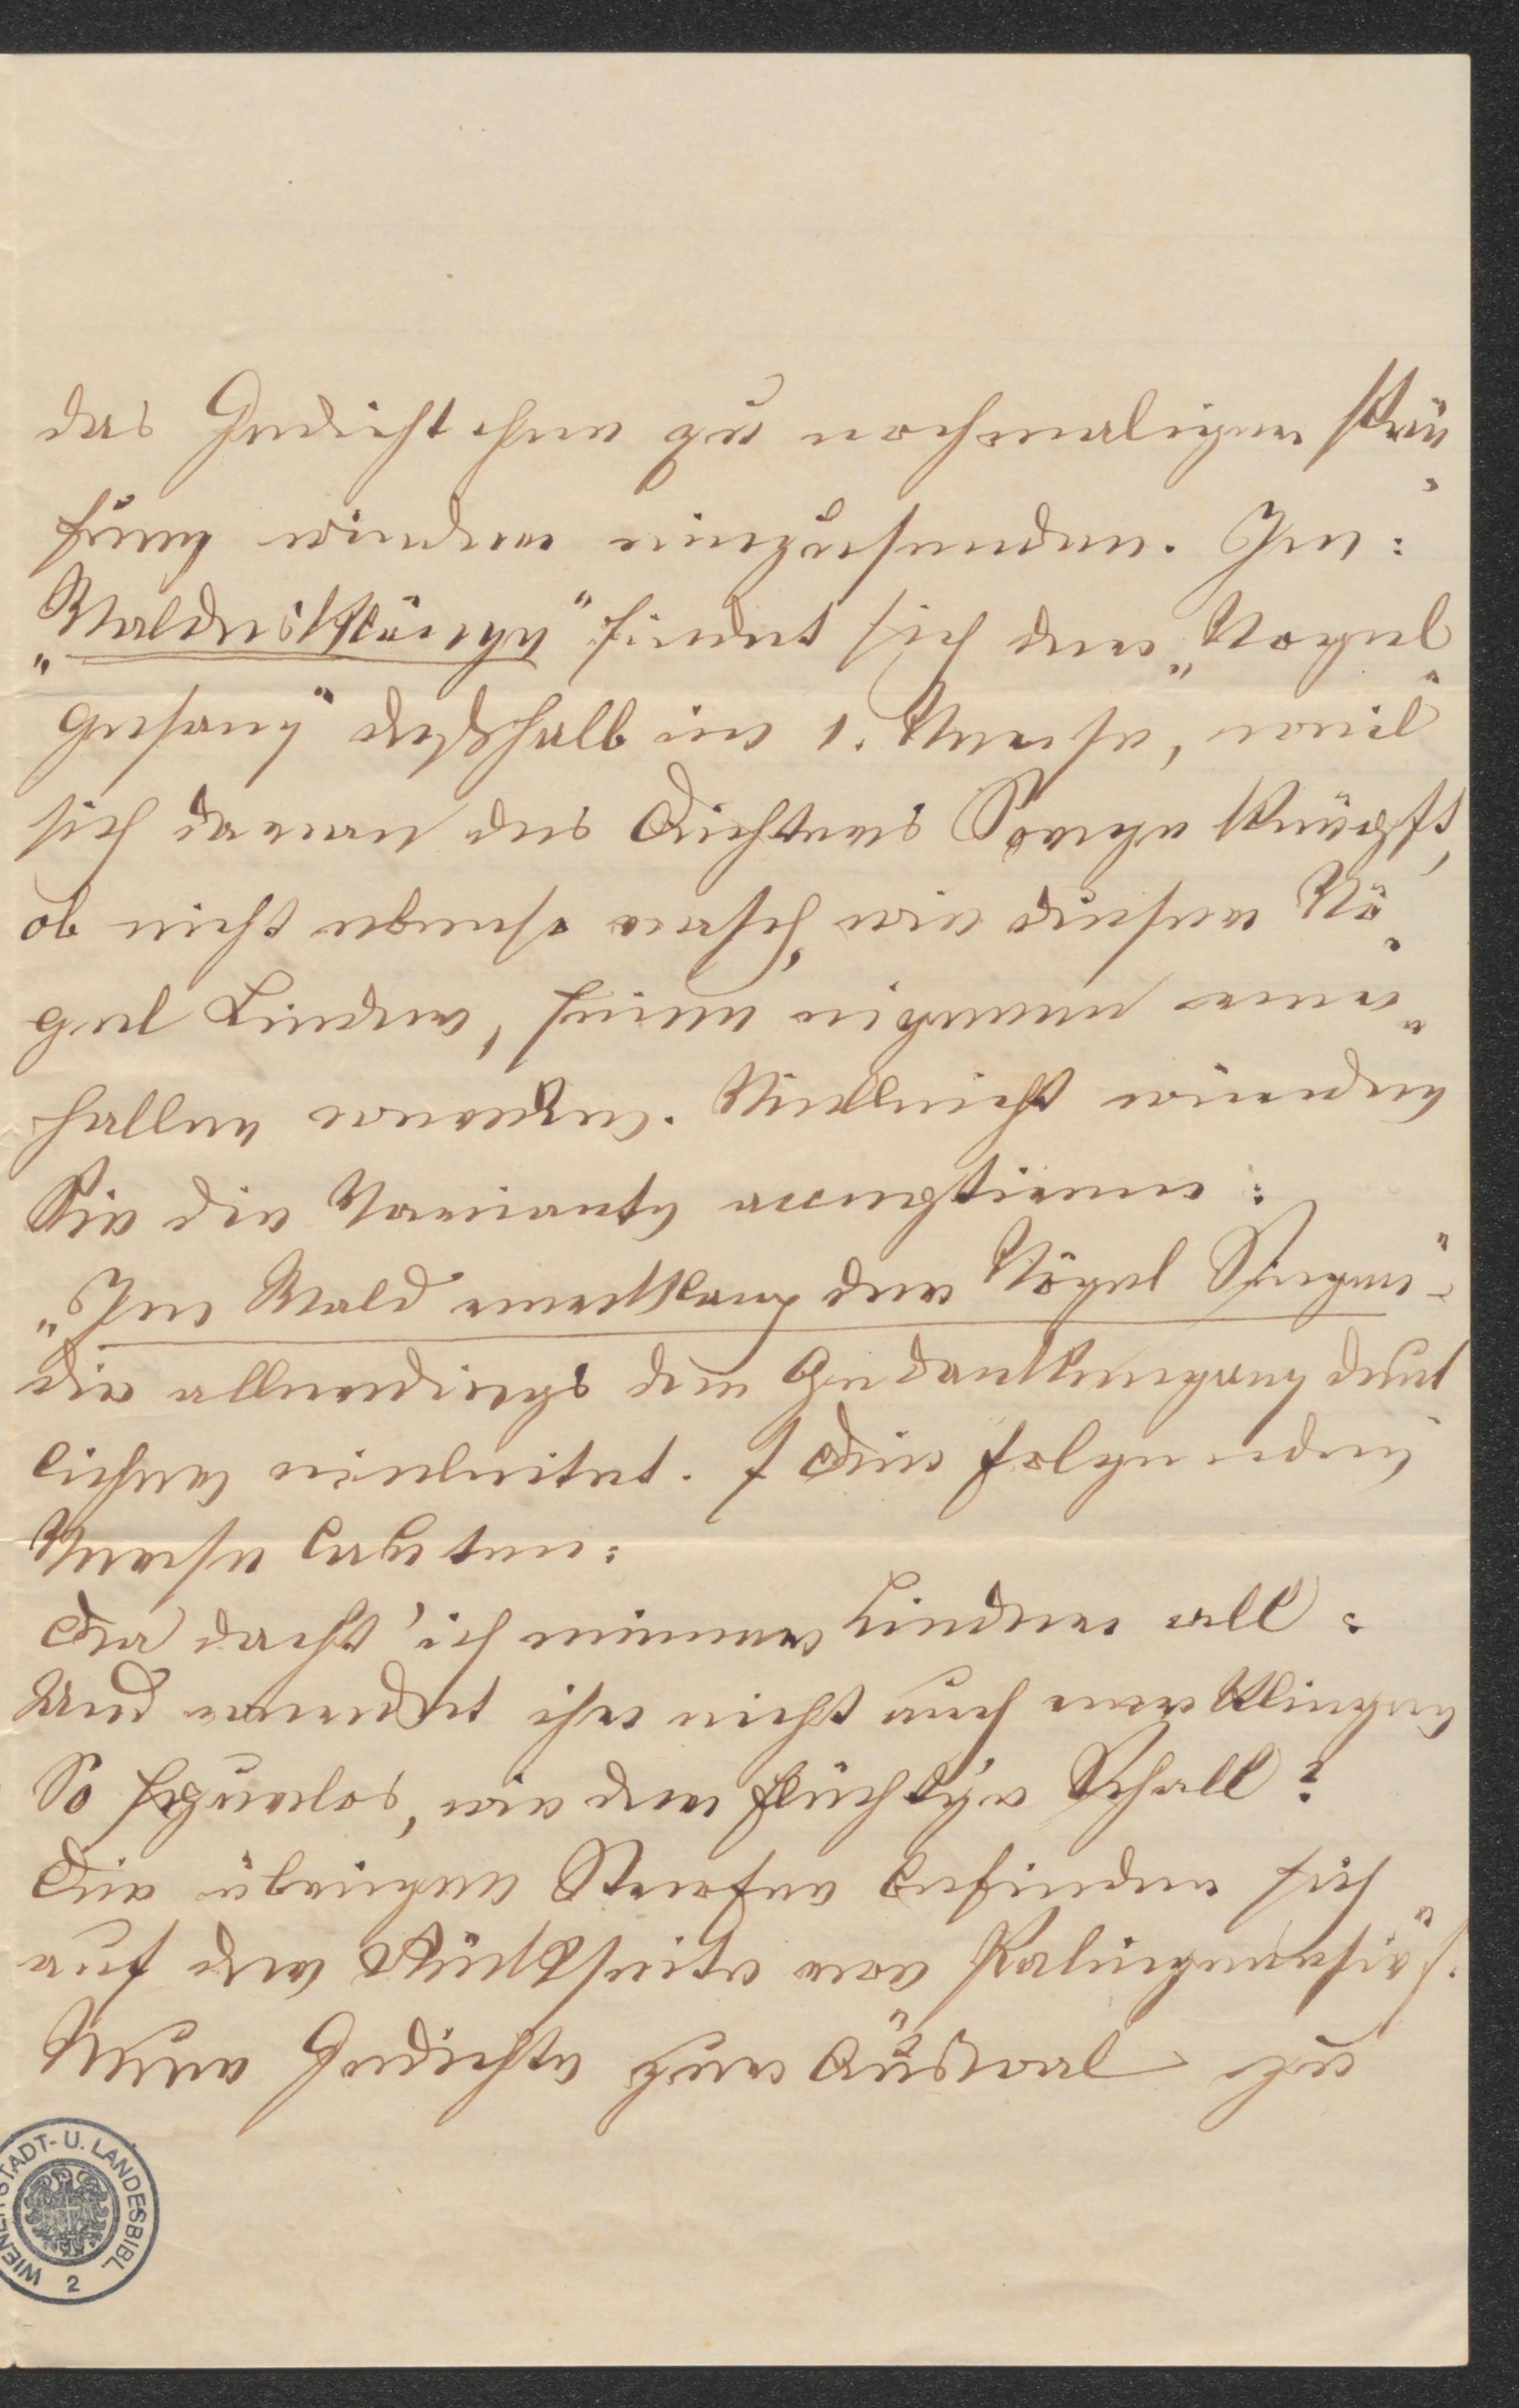 das Gedichtchen zu nochmaliger Prü
fung wieder einzusenden. Im:
„Waldesklänge" findet sich der „Vogel
gesang" deßhalb im 1. Verse, weil
sich daran des Dichters Sorge knüpft,
ob nicht ebenso rasch, wie dieser Vö
gel Lieder, seine eigenen ver
hallen werden. Vielleicht würden
Sie die Variante acceptieren:
„Im Wald verklang der Vögel Singen" –
die allerdings den Gedankengang deut
licher einleitet. Die folgenden
Verse lauten:
Da dacht' ich meiner Lieder all:
Und werdet ihr nicht auch verklingen
So spurlos, wie der flücht'ge Schall?
Die übrigen Strofen befinden sich
auf der Rückseite von „Palingenesie".
Neue Gedichte zur Auswal zu
WIENER STADT- U. LANDESBIBL.
2